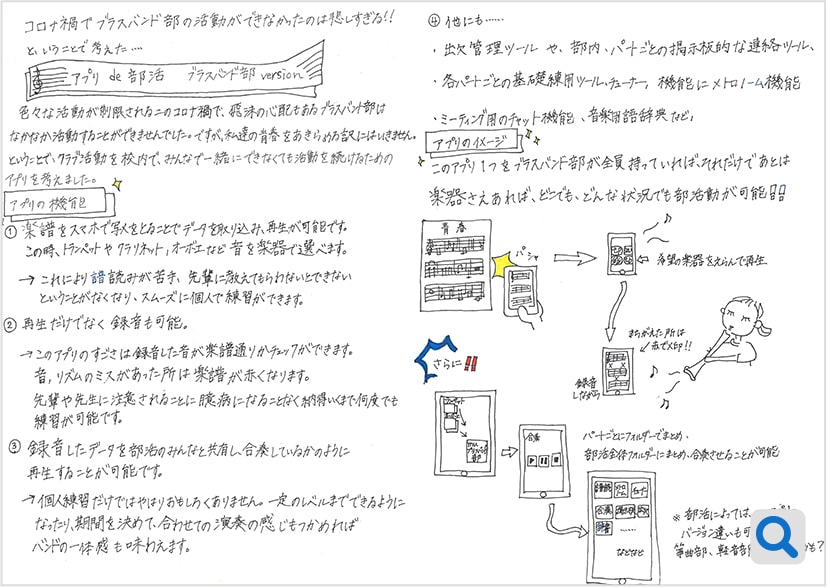 コロナ禍でブラスバンド部の活動ができなかったのは悲しすぎる!!
ということで考えた….
アプリ de 部活 ブラスバンド部 version
色々な活動が制限されるこのコロナ禍で、飛沫の心配もあるブラスバンド部は
なかなか活動することができませんでした。ですが、私達の青春をあきらめる訳にはいきません。
ということで、クラブ活動を校内で、みんなで一緒にできなくても活動を続けるための
アプリを考えました。
アプリの機能
① 楽譜をスマホで写メをとることでデータを取り込み、再生が可能です。
この時、トランペットやクラリネット、オーボエなど音を楽器で選べます。
→ これにより譜読みが苦手、先輩に教えてもらわないとできない
ということがなくなり、スムーズに個人で練習ができます。
② 再生だけでなく録音も可能。
→ このアプリのすごさは録音した音が楽譜通りかチェックができます。
音、リズムのミスがあった所は楽譜が赤くなります。
先輩や先生に注意されることに臆病になることなく納得いくまで何度でも
練習が可能です。
③ 録音したデータを部活のみんなと共有し、合奏しているかのように
再生することが可能です。
→ 個人練習だけではやはりおもしろくありません。一定のレベルまでできるように
なったり、期間を決めて、合わせての演奏の感じもつかめれば
バンドの一体感も味わえます。
④ 他にも……
・出欠管理ツールや、部内、パートごとの掲示板的な連絡ツール、
・各パートごとの基礎練用ツール、チューナー、機能にメトロノーム機能
・ミーティング用のチャット機能、音楽用語辞典など、
アプリのイメージ
このアプリ1つをブラスバンド部が全員持っていれば、それだけであとは
楽器さえあれば、どこでも、どんな状況でも部活動が可能!!
青春
パシャ
← 希望の楽器をえらんで再生
まちがえた所は
赤で×印!!
録音
しながら
さらに!!
合奏
パートごとにフォルダーでまとめ、
部活全体フォルダーにまとめ、合奏させることが可能
などなど
※ 部活によっては、
バージョン違いも可
箏曲部、軽音部